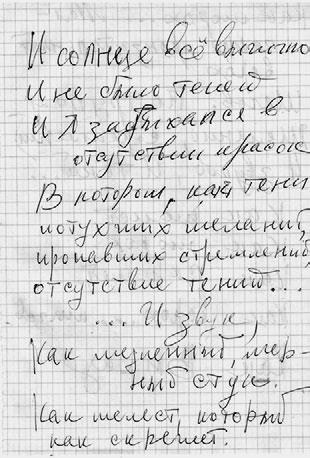 И солнце всё выжгло
И не было теней
И Я задыхался в
отсутствии красок
В котором, как тени
потухших желаний,
пропавших стремлений,
отсутствие теней...
... И звук,
Как медленный, мер-
ный стук.
Как шелест, который
как скрежет.